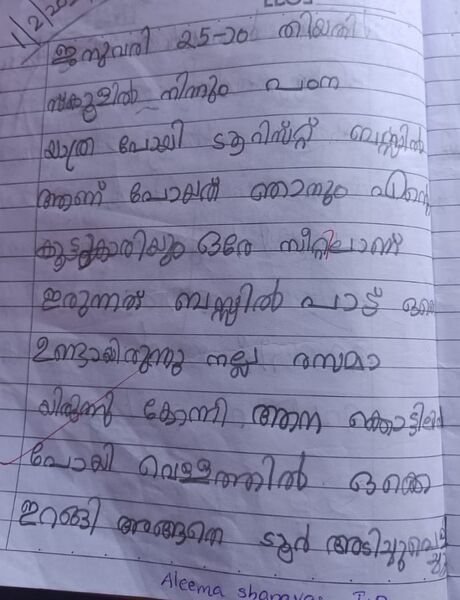 1/2/20
ജനുവരി 25-ാo തിയതി
സ്കൂളിൽ നിന്നും പഠന
യാത്ര പോയി ടൂറിസ്റ്റ് ബസ്സിൽ
ആണ് പോയത് ഞാനും എന്റെ
കൂട്ടുകാരിയും ഒരേ സീറ്റിലാണ്
ഇരുന്നത് ബസ്സിൽ പാട്ട് ഒക്കെ
ഉണ്ടായിരുന്നു നല്ല രസമാ
യിരുന്നു കോന്നി ആന കൊട്ടിലിൽ
പോയി വെള്ളത്തിൽ ഒക്കെ
ഇറങ്ങി അങ്ങനെ ടൂർ അടിച്ചുപൊളി
ച്ചു
Aleema